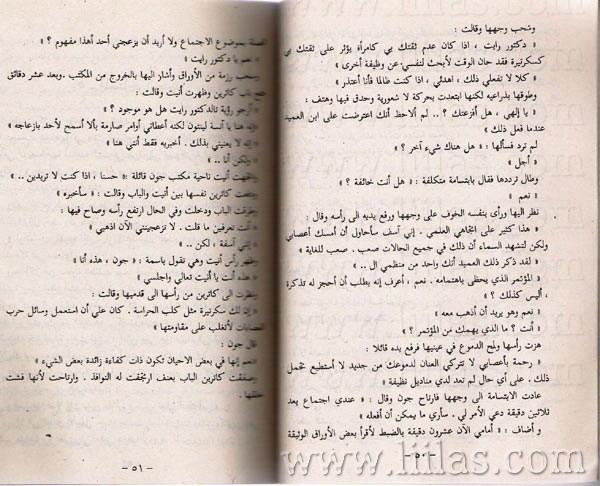 وشحب وجهها وقالت :
« دكتور رايت ، اذا كان عدم ثقتك بي كامرأة يؤثر على ثقتك بي
كسكرتيرة فقد حان الوقت لأبحث لنفسي عن وظيفة أخرى »
« كلا لا تفعلي ذلك ، اهدئي ، اذا كنت ظالما فأنا أعتذر »
وطوقها بذراعيه لكنها ابتعدت بحركة لا شعورية وحدق فيها وهتف :
« يا إلهي ، هل أفزعتك ؟ .. لم ألاحظ أنك اعترضت على ابن العميد
عندما فعل ذلك »
لم ترد فسألها : « هل هناك شيء آخر ؟ »
« أجل »
وطال ترددها فقال بابتسامة متكلفة : « هل أنت خائفة ؟ »
« نعم »
نظر اليها ورأى بنفسه الخوف على وجهها ورفع يديه الى رأسه وقال :
« هذا كثير على اتجاهي العلمي . إني آسف سأحاول أن أمسك أعصابي
ولكن لتشهد السماء أن ذلك في جميع الحالات صعب . صعب للغاية »
« لقد ذكر ذلك العميد أنك واحد من منظمي ال .. »
« المؤتمر الذي يحظى باهتمامه . نعم ، أعرف إنه يطلب أن أحجز له تذكرة
، أليس كذلك ؟ »
« نعم وهو يريد أن أذهب معه »
« أنت ؟ ما الذي يهمك من المؤتمر ؟ »
هزت رأسها ولمح الدموع في عينيها فرفع يده قائلا :
« رحمة بأعصابي لا تتركي العنان لدموعك من جديد لا أستطيع تحمل
ذلك . على أي حال لم تعد لدي مناديل نظيفة »
عادت الابتسامة الى وجهها فارتاح جون وقال : « عندي اجتماع بعد
ثلاثين دقيقة دعي الأمر لي . سأرى ما يمكن أن أفعله »
و أضاف : « أمامي الآن عشرون دقيقة بالضبط لأقرأ بعض الأوراق الوثيقة
- ٥٠ -
الصلة بموضوع الاجتماع ولا أريد أن يزعجني أحد أهذا مفهوم ؟ »
« نعم يا دكتور رايت »
وسحب رزمة من الأوراق وأشار اليها بالخروج من المكتب .وبعد عشر دقائق
فتح باب كاترين وظهرت أنيت وقالت :
« أرجو رؤية تالدكتور رايت هل هو موجود ؟ »
« إنه هنا يا آنسة لينتون لكنه أعطاني أوامر صارمة بألا أسمح لأحد بازعاجه »
« إنه لا يعنيني بذلك . أخبريه فقط أنني هنا »
« ولكن أنا .. »
واتجهت أنيت ناحية مكتب جون قائلة : « حسنا ، اذا كنت لا تريدين .. »
ووضعت كاترين نفسها بين أنيت والباب وقالت : « سأخبره »
وطرقت الباب ودخلت وفي الحال ارتفع رأسه وصاح فيها :
« أنت تعرفين ما قلت . لا تزعجينني الآن اذهبي »
« إني آسفة ، لكن .. »
وظهر رأس أنيت وهي تقول باسمة : « جون ، هذه أنا »
« هذه أنت يا أنيت تعالي واجلسي »
ونظرت الى كاترين من رأسها الى قدميها وقالت :
« إن لك سكرتيرة مثل كلب الحراسة . كان علي أن استعمل وسائل حرب
العصابات لأتغلب على مقاومتها »
قال جون :
« نعم إنها في بعض الاحيان تكون ذات كفاءة زائدة بعض الشيء »
وصفقت كاترين الباب بعنف ارتجفت له النوافذ . وارتاحت لأنها فشت
حنقها .
- ٥١ -
www.liilas.com